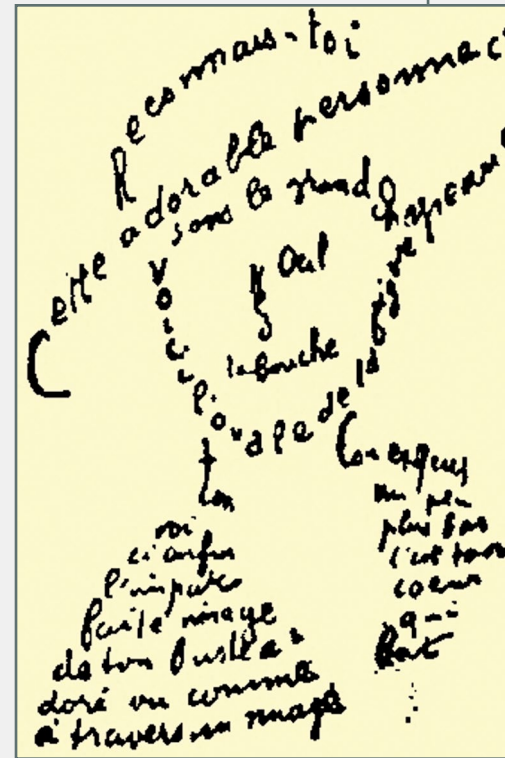 Reconnais-toi
Cette adorable personne c'
sous le grand chapeau
Oeil
la bouche
Voici l'ovale de ta figure
ton
cou exquis
voi
ci enfin
l'imparfaite image
de ton buste a
doré vu comme
à travers un nuage
un peu
plus bas
c'est ton
coeur
qui
bat